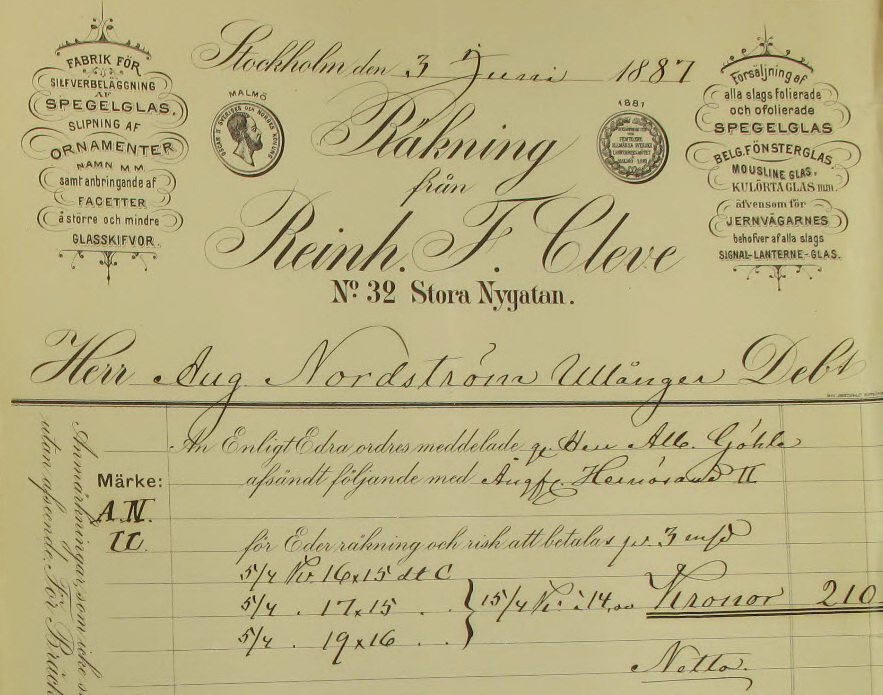 FABRIK FÖR
SILFVERBELÄGGNING
AF
SPEGELGLAS.
SLIPNING AF
ORNAMENTER
NAMN M M.
samt anbringande af
FACETTER
å större och mindre
GLASSKIFVOR.
Stockholm den 3 Juni 1887
MALMÖ
OSCAR II SVERIGES OCH NORGES KONUNG
1881
Räkning
från
Reinh. F. Cleve
No. 32 Stora Nygatan.
Försäljning af
alla slags folierade
och ofolierade
SPEGELGLAS
BELG. FÖNSTERGLAS
MOUSLINE GLAS,
KULÖRTA GLAS m m.
äfvensom för
JERNVÄGARNES
behofver af alla slags
SIGNAL-LANTERNE-GLAS.
Herr Aug. Nordström Ullånger Debt
An Enligt Edra ordres meddelade Herr Alb.
afsändt följande med Ångf. Hernösand II
Märke:
A.N.
II.
för Eder räkning och risk att betalas pr 3
5/4 Kr. 16x15 dt C
5/4 . 17x15 . . 15/4 Kr à 14,00 Kronor 210
5/4 . 19x16 . .
Netto.
Anmärkningar, som icke
utan afseende. För